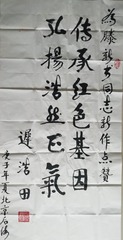 為滕同志新作点赞
傳承紅色基因
弘揚浩然正氣
遲浩田
庚子年夏北京